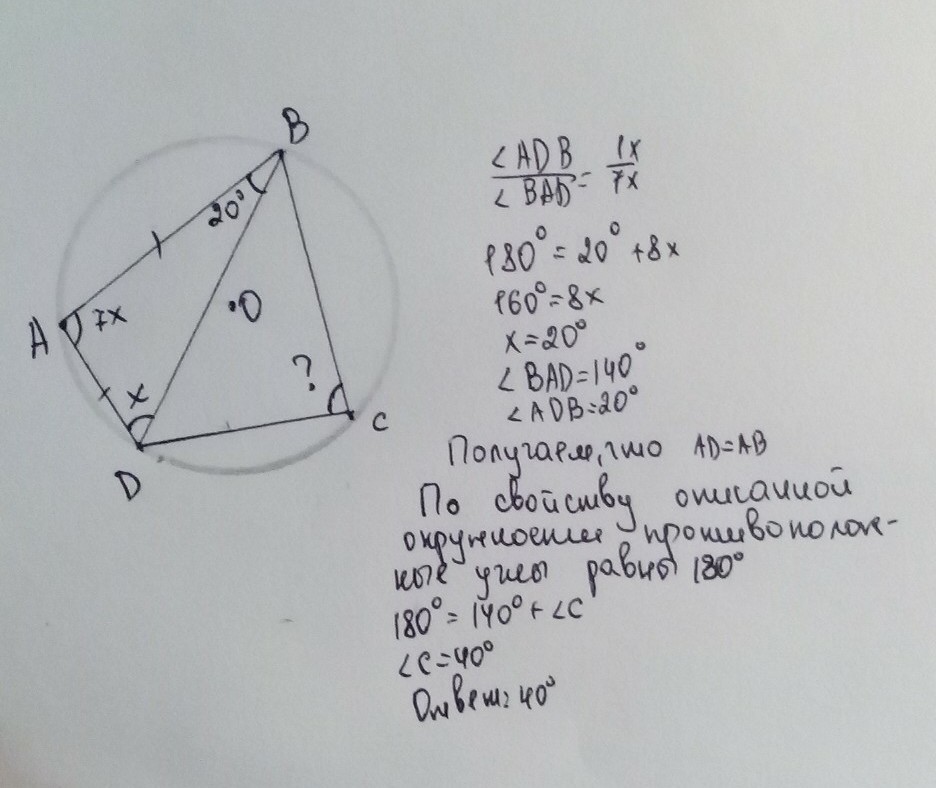 B
20°
A
7x
.O
?
x
C
D
∠ADB / ∠BAD = 1x / 7x
180° = 20° + 8x
160° = 8x
x = 20°
∠BAD = 140°
∠ADB = 20°
Получаем, что AD = AB
По свойству описанной
окружности противополож-
ные углы равны 180°
180° = 140° + ∠C
∠C = 40°
Ответ: 40°